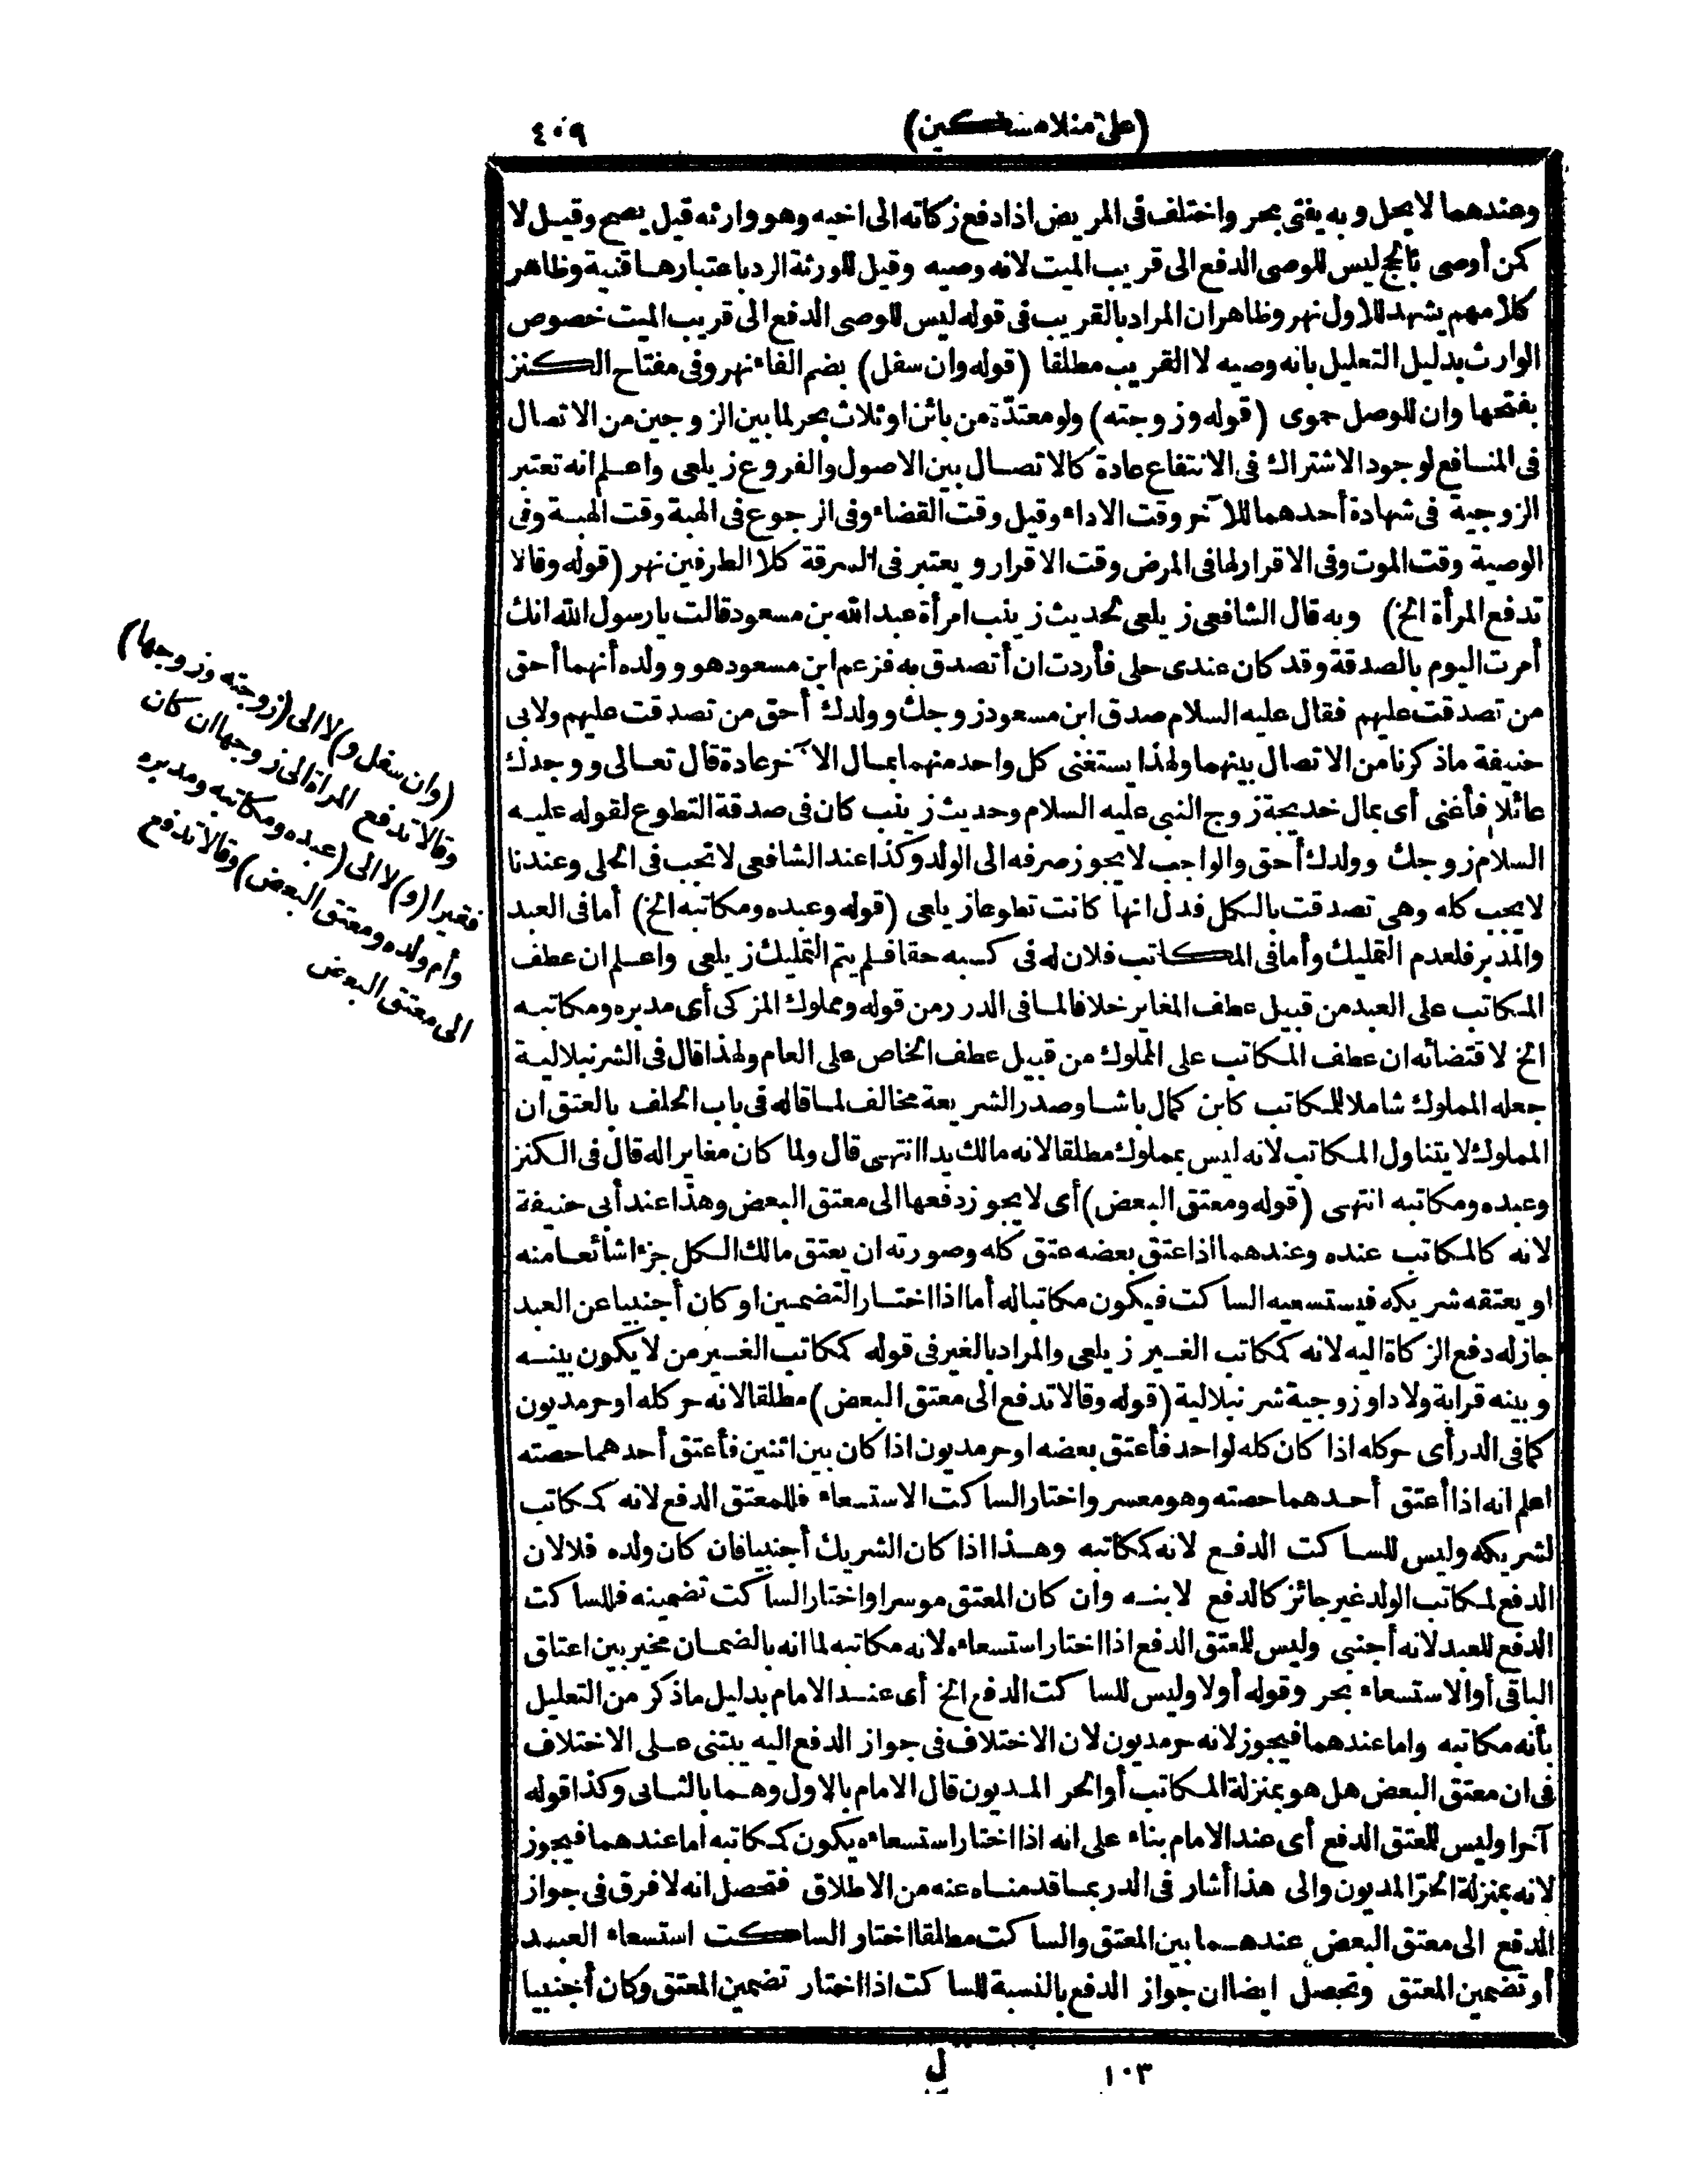 (على منلا مسكين) ٤٠٩
وعندهما لا يحل وبه يفتى بحر واختلف فى المريض اذا دفع زكاته الى اخيه وهو وارثه قيل يصح وقيل لا
كمن أوصى بالحج ليس للوصى الدفع الى قريب الميت لانه وصيه وقيل للورثة الرد باعتبارها قنية وظاهر
كلامهم يشهد للاول نهر وظاهر ان المراد بالقريب فى قوله ليس للوصى الدفع الى قريب الميت خصوص
الوارث بدليل التعليل بانه وصيه لا القريب مطلقا (قوله وان سفل) بضم الفاء نهر وفى مفتاح الكنز
بفتحها وان للوصل حموى (قوله وزوجته) ولو معتدّة من بائن او ثلاث بحر لما بين الزوجين من الاتصال
فى المنافع لوجود الاشتراك فى الانتفاع عادة كالاتصال بين الاصول والفروع زيلعى واعلم انه تعتبر
الزوجية فى شهادة أحدهما للآخر وقت الاداء وقيل وقت القضاء وفى الرجوع فى الهبة وقت الهبة وفى
الوصية وقت الموت وفى الاقرار لها فى المرض وقت الاقرار ويعتبر فى السرقة كلا الطرفين نهر (قوله وقالا
تدفع المرأة الخ) وبه قال الشافعى زيلعى لحديث زينب امرأة عبد الله بن مسعود قالت يا رسول الله انك
أمرت اليوم بالصدقة وقد كان عندى حلى فأردت ان أتصدق به فزعم ابن مسعود هو وولده أنهما أحق
من تصدقت عليهم فقال عليه السلام صدق ابن مسعود زوجك وولدك أحق من تصدقت عليهم ولابى
حنيفة ماذكرنا من الاتصال بينهما ولهذا يستغنى كل واحد منهما بمال الآخر عادة قال تعالى ووجدك
عائلا فأغنى أى بمال خديجة زوج النبى عليه السلام وحديث زينب كان فى صدقة التطوع لقوله عليه
السلام زوجك وولدك أحق والواجب لا يجوز صرفه الى الولد وكذا عند الشافعى لا تجب فى الحلى وعندنا
لا يجب كله وهى تصدقت بالكل فدل انها كانت تطوعا زيلعى (قوله وعبده ومكاتبه الخ) أما فى العبد
والمدبر فلعدم التمليك وأما فى المكاتب فلان له فى كسبه حقا فلم يتم التمليك زيلعى واعلم ان عطف
المكاتب على العبد من قبيل عطف المغاير خلافا لما فى الدرر من قوله ومملوك المزكى أى مدبره ومكاتبه
الخ لاقتضائه ان عطف المكاتب على المملوك من قبيل عطف الخاص على العام ولهذا قال فى الشرنبلالية
جعله المملوك شاملا للمكاتب كابن كمال باشا وصدر الشريعة مخالف لما قاله فى باب الحلف بالعتق ان
المملوك لا يتناول المكاتب لانه ليس بمملوك مطلقا لانه مالك يدا انتهى قال ولما كان مغايرا له قال فى الكنز
وعبده ومكاتبه انتهى (قوله ومعتق البعض) أى لا يجوز دفعها الى معتق البعض وهذا عند أبى حنيفة
لانه كالمكاتب عنده وعندهما اذا عتق بعضه عتق كله وصورته ان يعتق مالك الكل جزءا شائعا منه
او يعتقه شريكه فيستسعيه الساكت فيكون مكاتبا له أما اذا اختار التضمين او كان أجنبيا عن العبد
جاز له دفع الزكاة اليه لانه كمكاتب الغير زيلعى والمراد بالغير فى قوله كمكاتب الغير من لا يكون بينه
وبينه قرابة ولاد او زوجية شرنبلالية (قوله وقالا تدفع الى معتق البعض) مطلقا لانه حر كله او حر مديون
كما فى الدر أى حر كله اذا كان كله لواحد فأعتق بعضه او حر مديون اذا كان بين اثنين فأعتق أحدهما حصته
اعلم انه اذا أعتق أحدهما حصته وهو معسر واختار الساكت الاستسعاء فللمعتق الدفع لانه كمكاتب
لشريكه وليس للساكت الدفع لانه كمكاتبه وهذا اذا كان الشريك أجنبيا فان كان ولده فلا لان
الدفع لمكاتب الولد غير جائز كالدفع لابنه وان كان المعتق موسرا واختار الساكت تضمينه فللساكت
الدفع للعبد لانه أجنبى وليس للمعتق الدفع اذا اختار استسعاءه لانه مكاتبه لما انه بالضمان مخير بين اعتاق
الباقى أو الاستسعاء بحر وقوله أولا وليس للساكت الدفع الخ أى عند الامام بدليل ماذكر من التعليل
بأنه مكاتبه واما عندهما فيجوز لانه حر مديون لان الاختلاف فى جواز الدفع اليه يبتنى على الاختلاف
فى ان معتق البعض هل هو بمنزلة المكاتب أو الحر المديون قال الامام بالاول وهما بالثانى وكذا قوله
آخرا وليس للمعتق الدفع أى عند الامام بناء على انه اذا اختار استسعاءه يكون كمكاتبه اما عندهما فيجوز
لانه بمنزلة الحرّ المديون والى هذا أشار فى الدر بما قدمناه عنه من الاطلاق فتحصل انه لا فرق فى جواز
الدفع الى معتق البعض عندهما بين المعتق والساكت مطلقا اختار الساكت استسعاء العبد
أو تضمين المعتق وتحصل ايضا ان جواز الدفع بالنسبة للساكت اذا اختار تضمين المعتق وكان أجنبيا
(وان سفل و) لا الى (زوجته وزوجها)
وقالا تدفع المرأة الى زوجها ان كان
فقيرا (و) لا الى (عبده ومكاتبه ومدبره
وأم ولده ومعتق البعض) وقالا تدفع
الى معتق البعض
١٠٣ ل